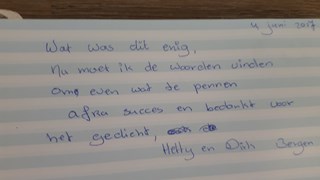 4 juni 2017
Wat was dit enig,
Nu moet ik de woorden vinden
Om even wat te pennen
succes en bedankt voor
het gedicht,
Hetty en Dirk Bergen